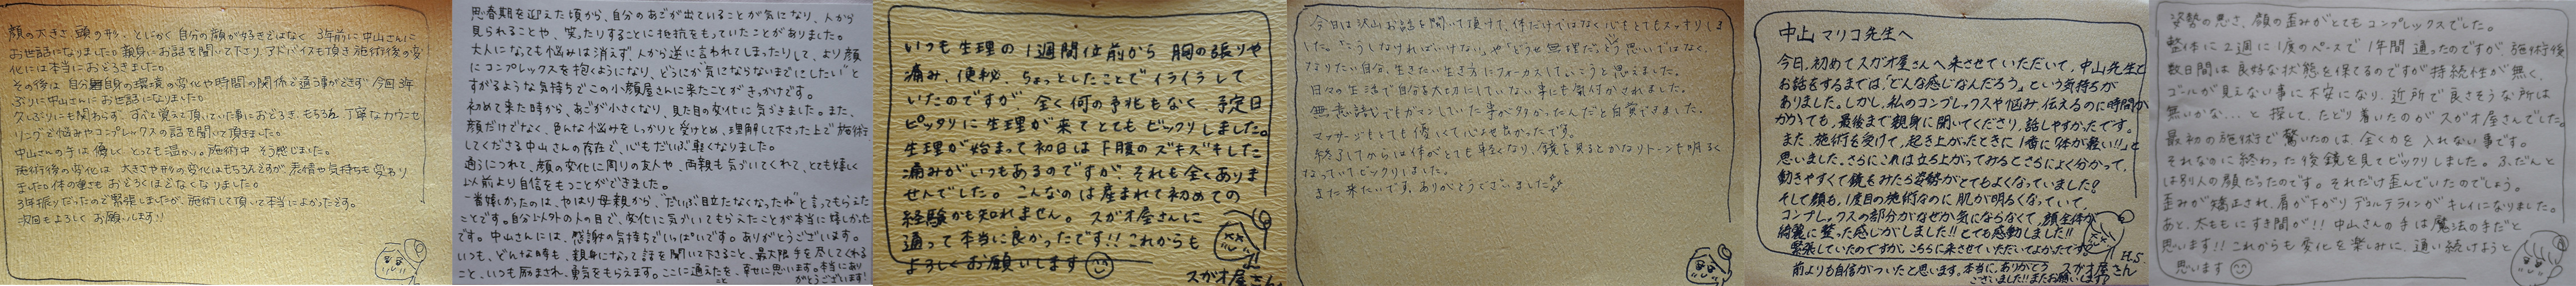 顔の大きさ、頭の形、とにかく自分の顔が好きではなく 3年前に中山さんに
お世話になりました。親身にお話を聞いて下さり、アドバイスも頂き施術後の変
化には本当におどろきました。
その後は 自分自身の環境の変化や時間の関係で通う事ができず 今回3年
ぶりに中山さんにお世話になりました。
久しぶりにも関わらず、すべて覚えて頂いていた事におどろき、もちろん丁寧なカウンセ
リングで悩みやコンプレックスの話を聞いて頂きました。
中山さんの手は優しく、とっても温かい。施術中 そう感じました。
施術後の変化は 大きさや形の変化はもちろんですが、表情や気持ちも変わり
ました。体の重さも おどろくほどなくなりました。
3年振りだったので緊張しましたが、施術して頂いて本当によかったです。
次回もよろしく お願いします!!
思春期を迎えた頃から、自分のあごが出ていることが気になり、人から
見られることや、笑ったりすることに抵抗をもっていたことがありました。
大人になっても悩みは消えず、人から逆に言われてしまったりして、より顔
にコンプレックスを抱くようになり、どうにか気にならないまでにしたい"と
すがるような気持ちでこの小顔屋さんに来たことがきっかけです。
初めて来た時から、あごが小さくなり、見た目の変化に気づきました。また、
顔だけでなく、色んな悩みをしっかりと受けとめ、理解して下さった上で施術を
してくださる中山さんの存在で、心もだいぶ軽くなりました。
通うにつれて、顔の変化に周りの友人や、両親も気づいてくれて、とても嬉しく
以前より自信をもつことができました。
一番嬉かったのは、やはり母親から、"だいぶ目立たなくなったね"と言ってもらえた
ことです。自分以外の人の目で、変化に気がついてもらえたことが本当に嬉しかった
です。中山さんには、感謝の気持ちでいっぱいです。ありがとうございます。
いつも、どんな時も、親身になって話を聞いて下さること、最大限手を尽してくれる
こと、いつも励まされ、勇気をもらえます。ここに通えたこと、幸せに思います。本当にあり
がとうございます!
いつも生理の1週間位前から 胸の張りや
痛み、便秘、ちょっとしたことでイライラして
いたのですが、全く何の予兆もなく、予定日
ピッタリに生理が来てとてもビックリしました。
生理が始まって初日は下腹のズキズキした
痛みがいつもあるのですが、それも全くありま
せんでした。こんなのは産まれて初めての
経験かも知れません。スガオ屋さんに
通って本当に良かったです!!これからも
よろしくお願いします
スガオ屋さん
今日は沢山お話を聞いて頂けて、体だけではなく心もとてもスッキリしま
した。「こうしなければいけない」や「どうせ無理だ」と思いではなく、
なりたい自分、生きたい生き方にフォーカスしていこうと思えました。
日々の生活で自分を大切にしていない事にも気付かされました。
無意識にでもガマンしていた事が多かったんだと自覚できました。
マッサージもとても優しくて心地良かったです。
終了してからは体がとても軽くなり、鏡を見るとかなりトーンも明るく
なっていてビックリしました。
また来たいです。ありがとうございました
中山マリコ先生へ
今日、初めてスガオ屋さんへ来させていただいて、中山先生と
お話をするまでは、「どんな感じなんだろう」という気持ちが
ありました。しかし、私のコンプレックスや悩み、伝えるのに時間が
かかっても、最後まで親身に聞いてくださり、話しやすかったです。
また、施術を受けて、起き上がったときに1番に「体が軽い!!」と
思いました。さらにこれは立ち上がってみるとさらによく分かって、
動きやすくて鏡をみたら姿勢がとてもよくなっていました?
そして顔も、1度目の施術なのに肌が明るくなっていて、
コンプレックスの部分がなぜか気にならなくて、顔全体が
綺麗に整った感じがしました!!とても感動しました!!
緊張していたのですが、こちらに来させていただいてよかったです。
前よりも自信がついたと思います。本当に、ありがとう
ございました!!またお願いします?
H.S.
スガオ屋さん
姿勢の悪さ、顔の歪みがとてもコンプレックスでした。
整体に2週に1度のペースで1年間通ったのですが、施術後
数日間は良好な状態を保てるのですが持続性が無く、
ゴールが見えない事に不安になり、近所で良さそうな所は
無いかな...と探して、たどり着いたのがスガオ屋さんでした。
最初の施術で驚いたのは、全く力を入れない事です。
それなのに終わった後鏡を見てビックリしました。ふだんと
は別人の顔だったのです。それだけ歪んでいたのでしょう。
歪みが矯正され、肩が下がりデコルテラインがキレイになりました。
あと、太ももにすき間が!!中山さんの手は魔法の手だと
思います!!これからも変化を楽しみに、通い続けようと
思います